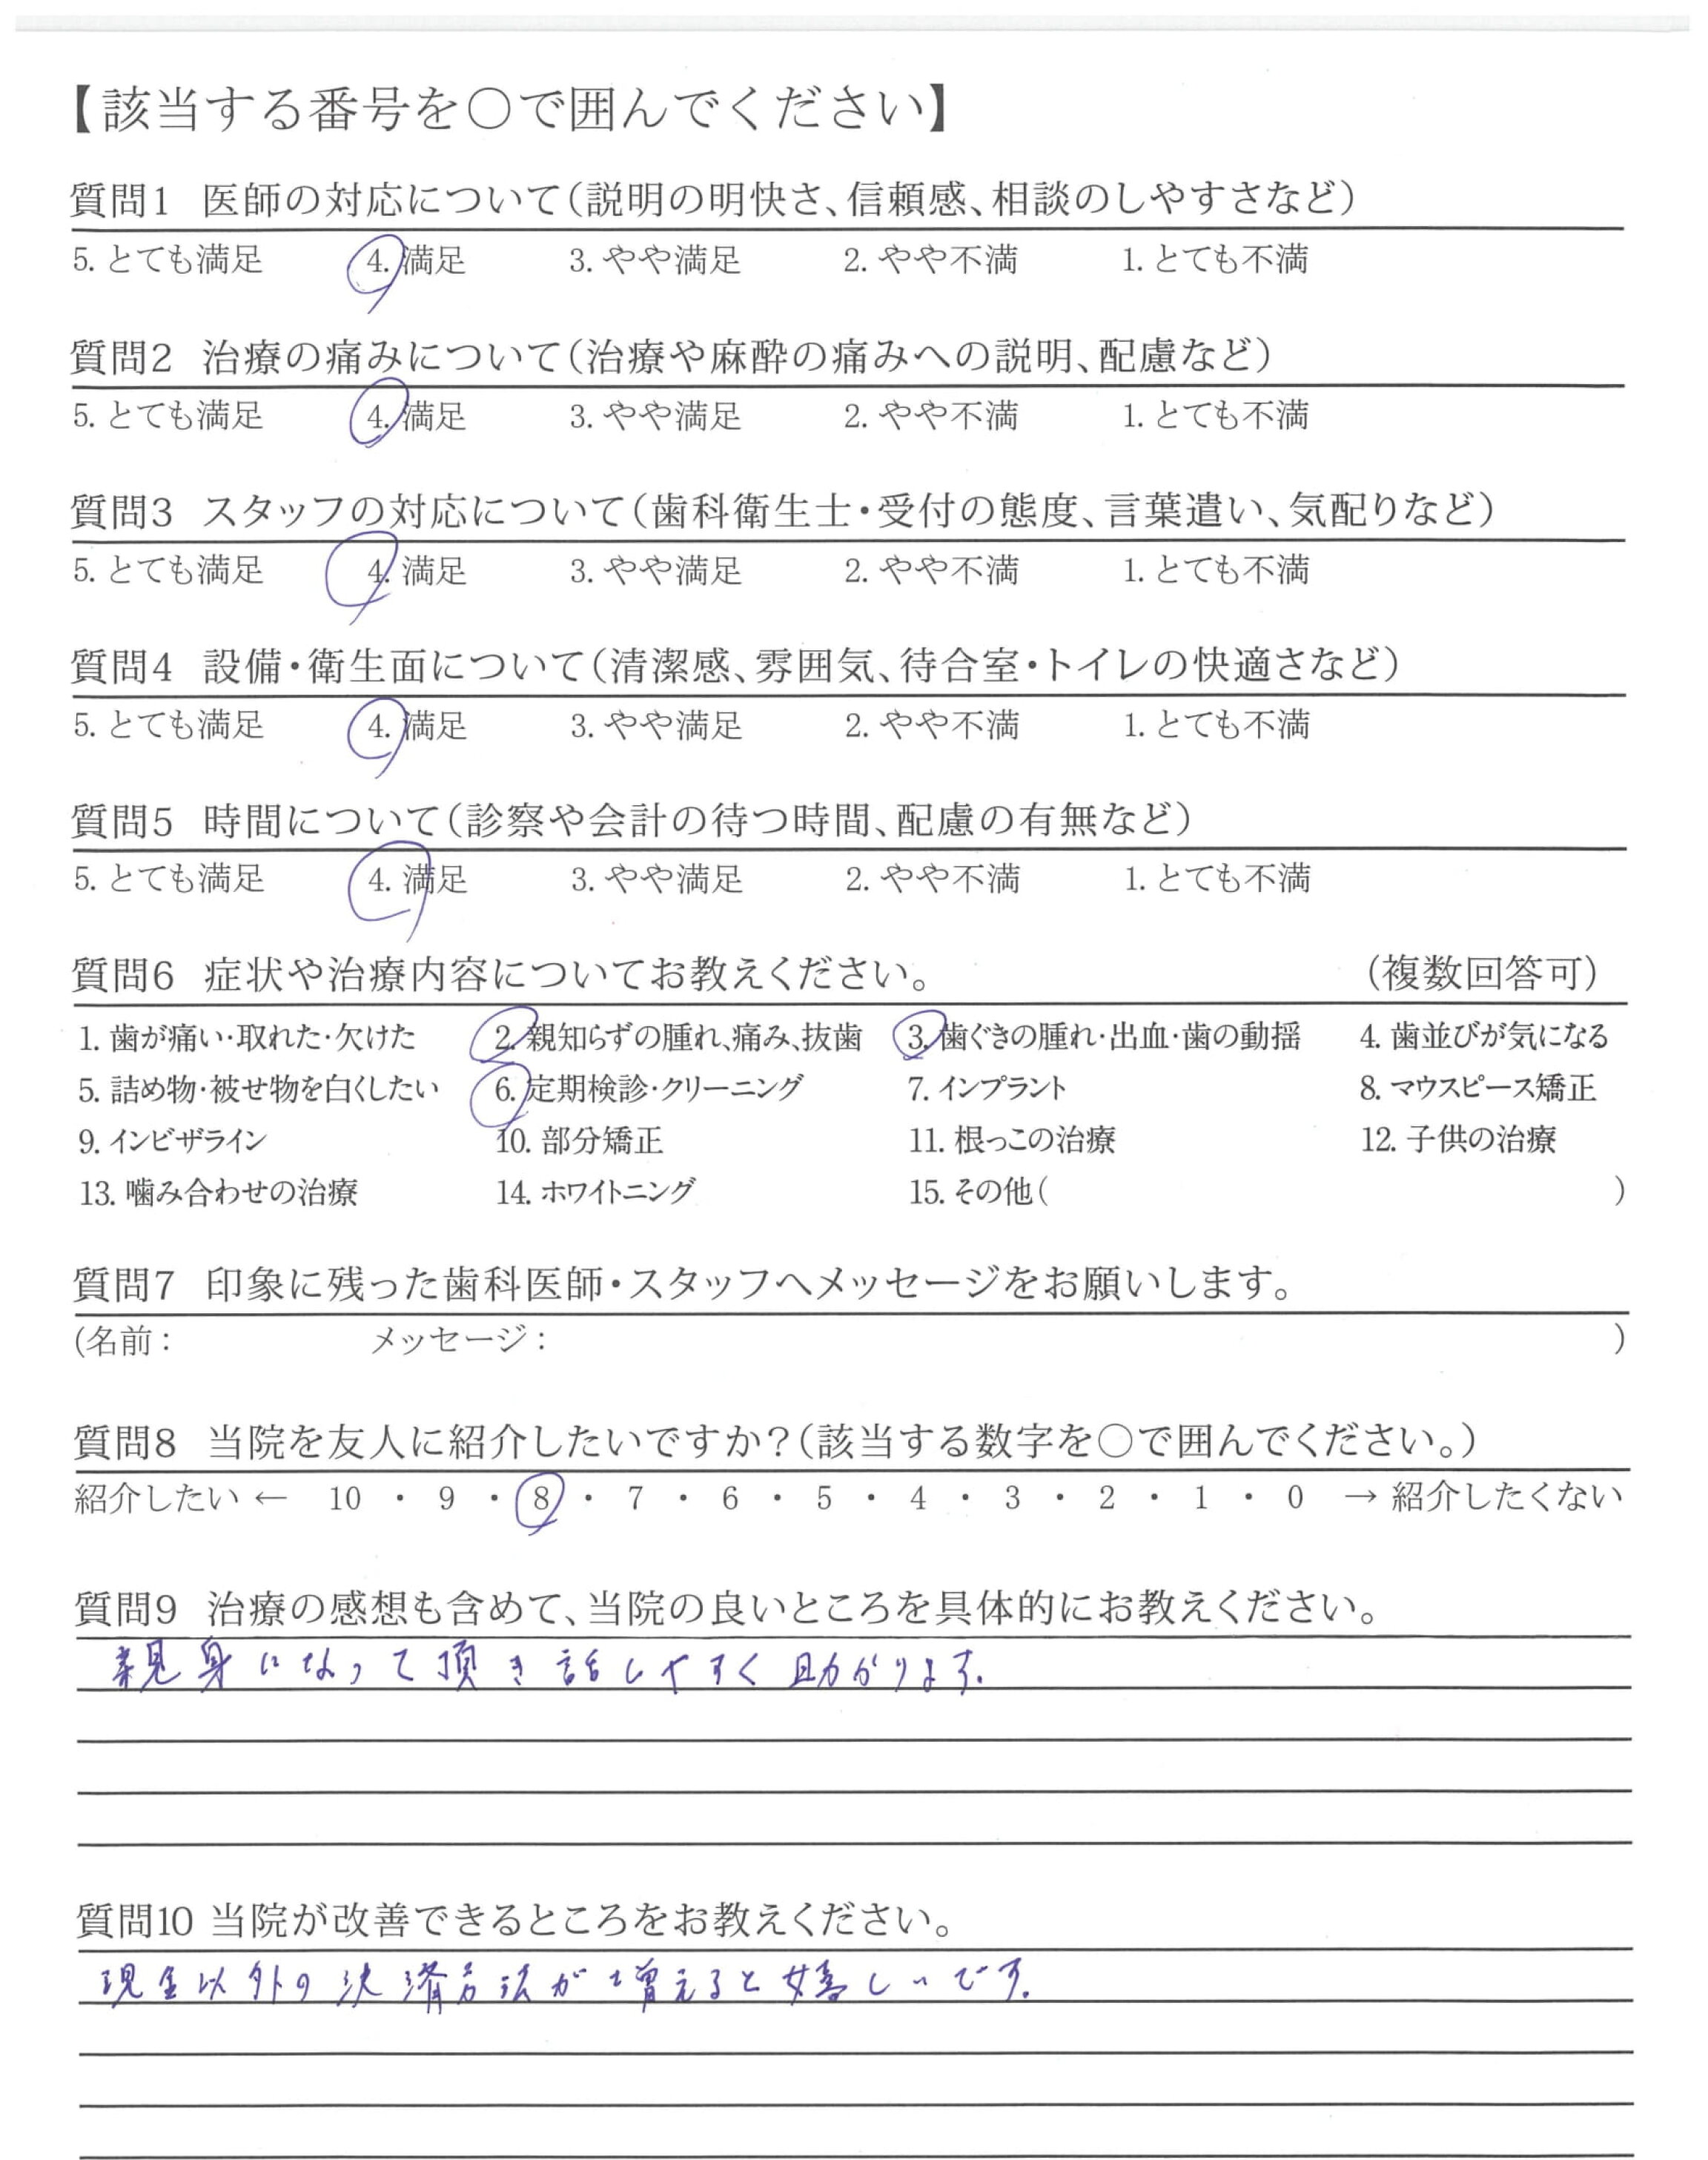 【該当する番号を○で囲んでください】
質問1 医師の対応について(説明の明快さ、信頼感、相談のしやすさなど)
5. とても満足 4. 満足 3. やや満足 2. やや不満 1. とても不満
質問2 治療の痛みについて(治療や麻酔の痛みへの説明、配慮など)
5. とても満足 4. 満足 3. やや満足 2. やや不満 1. とても不満
質問3 スタッフの対応について(歯科衛生士・受付の態度、言葉遣い、気配りなど)
5. とても満足 4. 満足 3. やや満足 2. やや不満 1. とても不満
質問4 設備・衛生面について(清潔感、雰囲気、待合室・トイレの快適さなど)
5. とても満足 4. 満足 3. やや満足 2. やや不満 1. とても不満
質問5 時間について(診察や会計の待つ時間、配慮の有無など)
5. とても満足 4. 満足 3. やや満足 2. やや不満 1. とても不満
質問6 症状や治療内容についてお教えください。 (複数回答可)
1. 歯が痛い・取れた・欠けた 2. 親知らずの腫れ、痛み、抜歯 3. 歯ぐきの腫れ・出血・歯の動揺 4. 歯並びが気になる
5. 詰め物・被せ物を白くしたい 6. 定期検診・クリーニング 7. インプラント 8. マウスピース矯正
9. インビザライン 10. 部分矯正 11. 根っこの治療 12. 子供の治療
13. 噛み合わせの治療 14. ホワイトニング 15. その他( )
質問7 印象に残った歯科医師・スタッフへメッセージをお願いします。
(名前： メッセージ： )
質問8 当院を友人に紹介したいですか？(該当する数字を○で囲んでください。)
紹介したい ← 10 ・ 9 ・ 8 ・ 7 ・ 6 ・ 5 ・ 4 ・ 3 ・ 2 ・ 1 ・ 0 → 紹介したくない
質問9 治療の感想も含めて、当院の良いところを具体的にお教えください。
親身になって頂き話しやすく助かります。
質問10 当院が改善できるところをお教えください。
現金以外の決済方法が増えると嬉しいです。